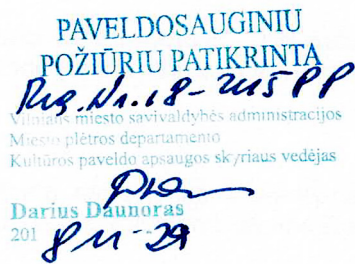 PAVELDOSAUGINIU
POŽIŪRIU PATIKRINTA
Reg. Nr. 18-2115 PP
Vilniaus miesto savivaldybės administracijos
Miesto plėtros departamento
Kultūros paveldo apsaugos skyriaus vedėjas
Darius Daunoras
2018 11-29